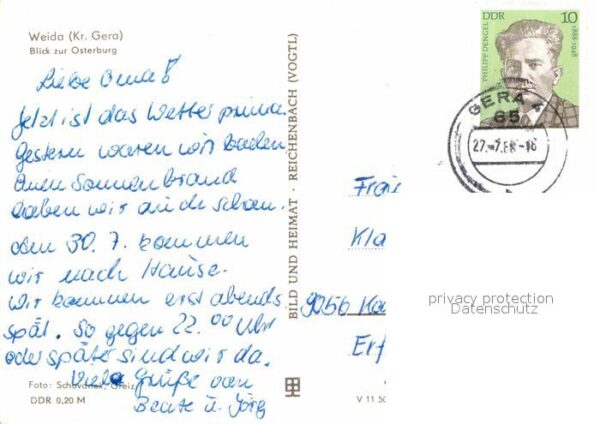 Weida (Kr. Gera)
Blick zur Osterburg
Liebe Oma!
Jetzt ist das Wetter prima.
Gestern waren wir baden
Einen Sonnenbrand
haben wir auch schon.
Am 30. 7. kommen
wir nach Hause.
Wir kommen erst abends
spät. So gegen 22.00 Uhr
oder später sind wir da.
Viele Grüße von
Beate u. Jörg
Foto: Schovanek, Greiz
DDR 0,20 M
BILD UND HEIMAT · REICHENBACH (VOGTL)
V 11 50
DDR 10
PHILIPP DENGEL
1888-1948
GERA
65
27.-7.88-16
Frau
Kla
Erf
privacy protection
Datenschutz